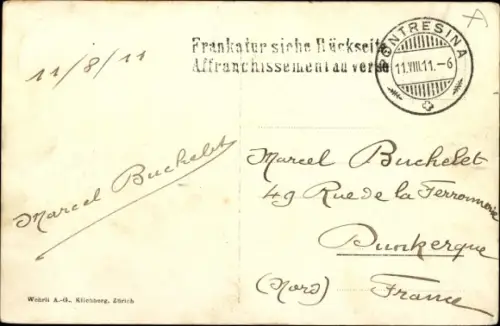 11/8/11
Frankatur siehe Rückseite
Affranchissement au verso
PONTRESINA
11.VIII.11.-6
Marcel Buchelet
Marcel Buchelet
49 Rue de la Ferronnerie
Dunkerque
(Nord) France
Wehrli A.-G., Kilchberg, Zürich